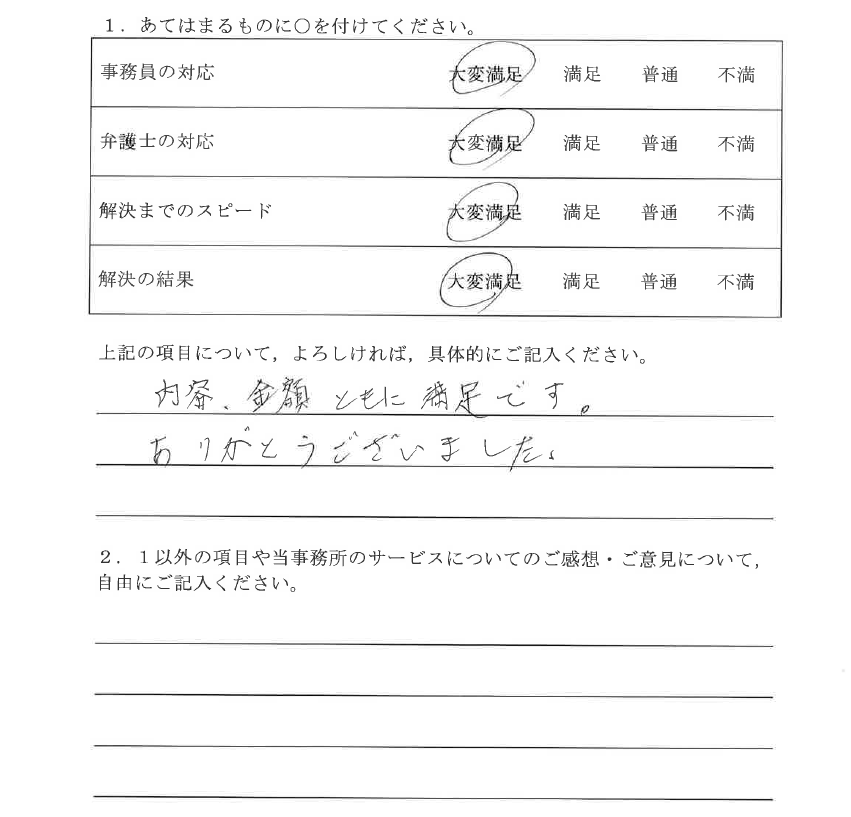 １．あてはまるものに○を付けてください。
事務員の対応　大変満足　満足　普通　不満
弁護士の対応　大変満足　満足　普通　不満
解決までのスピード　大変満足　満足　普通　不満
解決の結果　大変満足　満足　普通　不満
上記の項目について，よろしければ，具体的にご記入ください。
内容、金額ともに満足です。
ありがとうございました。
２．１以外の項目や当事務所のサービスについてのご感想・ご意見について，
自由にご記入ください。